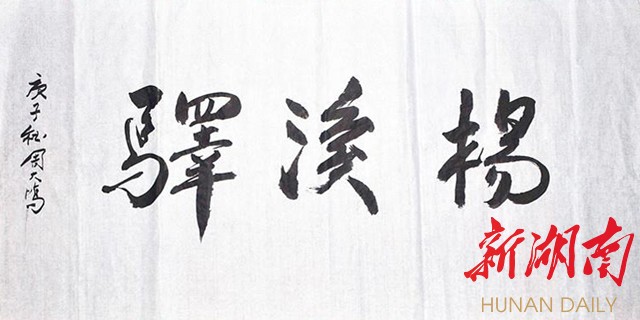 楊溪驛
庚子秋周大鸣
新湖南
HUNAN DAILY